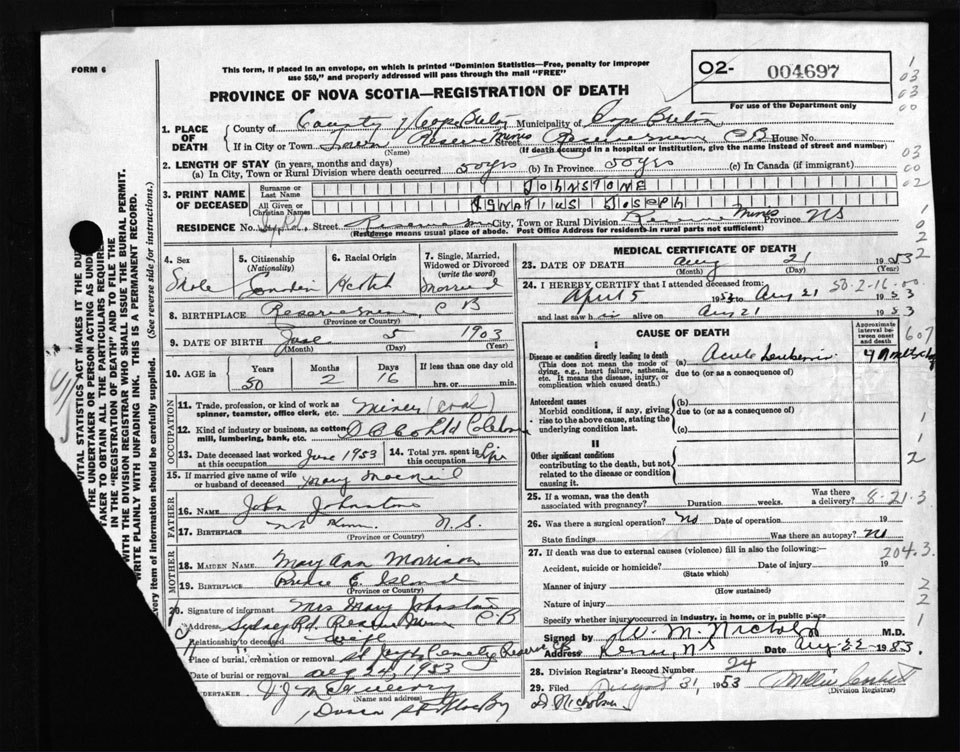 FORM 6
This form, if placed in an envelope, on which is printed "Dominion Statistics—Free, penalty for improper
use $50," and properly addressed will pass through the mail "FREE"
O2- 004697
For use of the Department only
PROVINCE OF NOVA SCOTIA—REGISTRATION OF DEATH
1. PLACE OF DEATH
County of County of Cape Breton Municipality of Cape Breton
If in City or Town Reserve Mines Street C B House No.
(Name) (If death occurred in a hospital or institution, give the name instead of street and number)
2. LENGTH OF STAY (in years, months and days)
(a) In City, Town or Rural Division where death occurred 50 yrs (b) In Province 50 yrs (c) In Canada (if immigrant)
3. PRINT NAME OF DECEASED
Surname or Last Name JOHNSTONE
All Given or Christian Names IGNATIUS JOSEPH
RESIDENCE No. Syd Rd. Street Reserve City, Town or Rural Division Reserve Mines Province NS
(Residence means usual place of abode. Post Office Address for residents in rural parts not sufficient)
4. Sex
5. Citizenship (Nationality)
6. Racial Origin
7. Single, Married, Widowed or Divorced (write the word)
Scotch Married
8. BIRTHPLACE Reserve Mines, C B
(Province or Country)
9. DATE OF BIRTH June 5 1903
(Month) (Day) (Year)
10. AGE in Years Months Days If less than one day old
50 2 16 hrs. or min.
OCCUPATION
11. Trade, profession or kind of work as spinner, teamster, office clerk, etc. Miner (coal)
12. Kind of industry or business, as cotton mill, lumbering, bank, etc.
13. Date deceased last worked at this occupation June 1953
14. Total yrs. spent in this occupation Life
15. If married give name of wife or husband of deceased Mary MacNeil
FATHER
16. NAME John Johnstone
17. BIRTHPLACE N.S.
(Province or Country)
MOTHER
18. MAIDEN NAME Mary Ann Morrison
19. BIRTHPLACE Prince E. Island
(Province or Country)
20. Signature of informant Mrs Mary Johnstone
Address Sydney Rd. Reserve Mines C B
Relationship to deceased wife
Place of burial, cremation or removal St Josephs Cemetery Reserve CB
Date of burial or removal Aug 24, 1953
UNDERTAKER
(Name and address)
MEDICAL CERTIFICATE OF DEATH
23. DATE OF DEATH Aug 21 1953
(Month) (Day) (Year)
24. I HEREBY CERTIFY that I attended deceased from:
April 5 1953 to Aug 21 1953
and last saw h is alive on Aug 21 1953
50-2-16-00
CAUSE OF DEATH
Approximate interval between onset and death
I
Disease or condition directly leading to death
(This does not mean the mode of dying, e.g., heart failure, asthenia, etc. It means the disease, injury, or complication which caused death.)
(a) Acute Leukemia
due to (or as a consequence of)
Antecedent causes
Morbid conditions, if any, giving rise to the above cause, stating the underlying condition last.
(b)
due to (or as a consequence of)
(c)
II
Other significant conditions
contributing to the death, but not related to the disease or condition causing it.
25. If a woman, was the death associated with pregnancy? Duration weeks. Was there a delivery?
8-21-3
26. Was there a surgical operation? No Date of operation 19
State findings Was there an autopsy? No
204.3
27. If death was due to external causes (violence) fill in also the following:—
Accident, suicide or homicide? Date of injury 19
(State which)
Manner of injury
(How sustained)
Nature of injury
Specify whether injury occurred in industry, in home, or in public place
Signed by W. M. Nicholson M.D.
Address NS Date Aug 22 1953.
28. Division Registrar's Record Number 24
29. Filed August 31, 1953
(Division Registrar)
D Nicholson
VITAL STATISTICS ACT MAKES IT THE DU
THE UNDERTAKER OR PERSON ACTING AS UNDER
TAKER TO OBTAIN ALL THE PARTICULARS REQUIRED
IN THE "REGISTRATION OF DEATH" AND TO FILE THE
WITH THE DIVISION REGISTRAR WHO SHALL ISSUE THE BURIAL PERMIT.
WRITE PLAINLY WITH UNFADING INK. THIS IS A PERMANENT RECORD.
Every item of information should be carefully supplied. (See reverse side for instructions.)